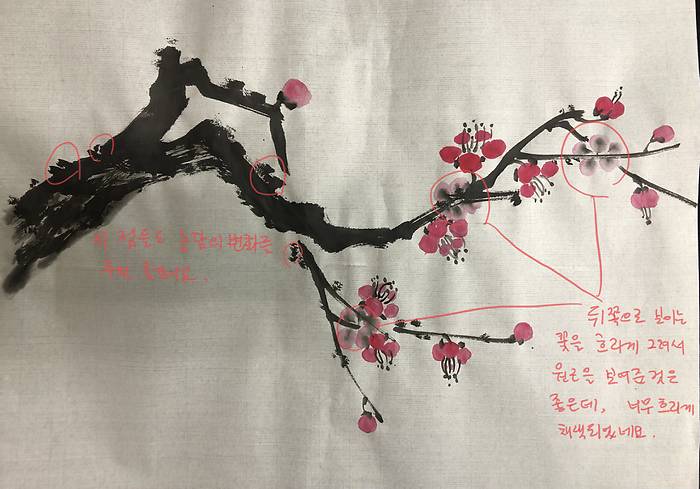 이 점들도 농담의 변화를
주면 좋겠어요.
뒤쪽으로 보이는
꽃을 흐리게 그려서
원근을 보여준 것은
좋은데, 너무 흐리게
채색되었네요.